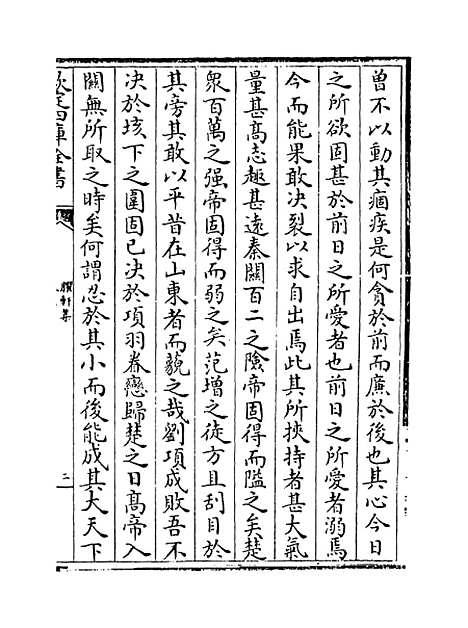 曾不以動其痼疾是何貪於前而廉於後也其心今日
之所欲固甚於前日之所愛者也前日之所愛者溺焉
今而能果敢决裂以求自出焉此其所挾持者甚大氣
量甚髙志趣甚遠秦關百二之險帝固得而隘之矣楚
衆百萬之强帝固得而弱之矣范增之徒方且刮目於
其旁其敢以平昔在山東者而藐之哉劉項成敗吾不
决於垓下之圍固已决於項羽眷戀歸楚之日髙帝入
關無所取之時矣何謂忍於其小而後能成其大天下
欽定四庫全書
臞軒集
二